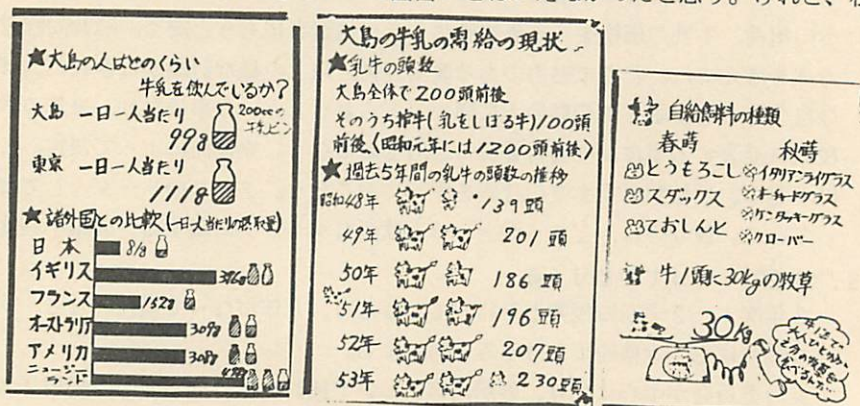 ★大島の人はどのくらい
牛乳を飲んでいるか?
大島 一日一人当たり
99g
200ccの
牛乳ビン
東京 一日一人当たり
111g
★諸外国との比較(一日一人当たりの摂取量)
日本 81g
イギリス 376g
フランス 152g
オーストラリア 309g
アメリカ 308g
ニュージーランド
大島の牛乳の需給の現状
★乳牛の頭数
大島全体で200頭前後
そのうち搾牛(乳をしぼる牛)100頭
前後(昭和元年には1200頭前後)
★過去5年間の乳牛の頭数の推移
昭和48年 139頭
49年 201頭
50年 186頭
51年 196頭
52年 207頭
53年 230頭
自給飼料の種類
春蒔
とうもろこし
スダックス
ておしんと
秋蒔
イタリアンライグラス
オーチャードグラス
ケンタッキーグラス
クローバー
牛1頭に30kgの牧草
30Kg